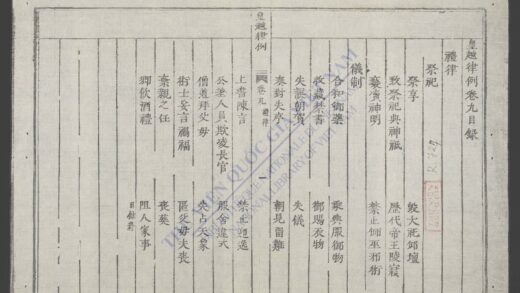 皇越律例卷九目錄
禮律
祭祀
祭享 毀大祀邱壇
致祭祀典神祇 歷代帝王陵寢
褻瀆神明 禁止師巫邪術
儀制
合和御藥 乘輿服御物
收藏禁書 御賜衣物
失誤朝賀 失儀
皇越律例 卷九 禮律 一
奏對失序 朝見留難
上書陳言 禁止迎送
公差人員欺凌長官 服舍違式
僧道拜父母 失占天象
術士妄言禍福 匿父母夫喪
棄親之任 喪葬
鄉飲酒禮
THƯ VIỆN QUỐC GIA VIỆT NAM
NATIONAL LIBRARY OF VIETNAM